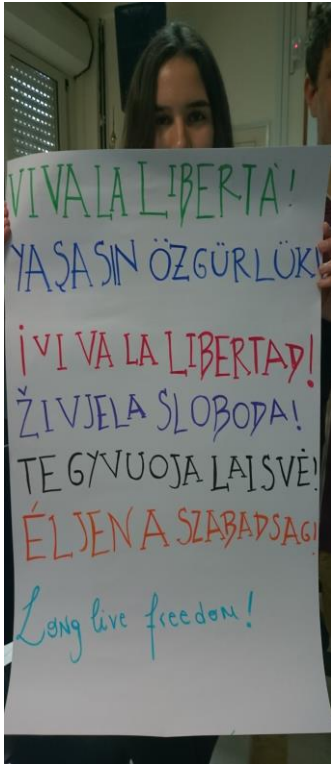 VIVA LA LIBERTÀ!
YAŞASIN ÖZGÜRLÜK!
¡VIVA LA LIBERTAD!
ŽIVJELA SLOBODA!
TE GYVUOJA LAISVĖ!
ÉLJEN A SZABADSAG!
Long live freedom!